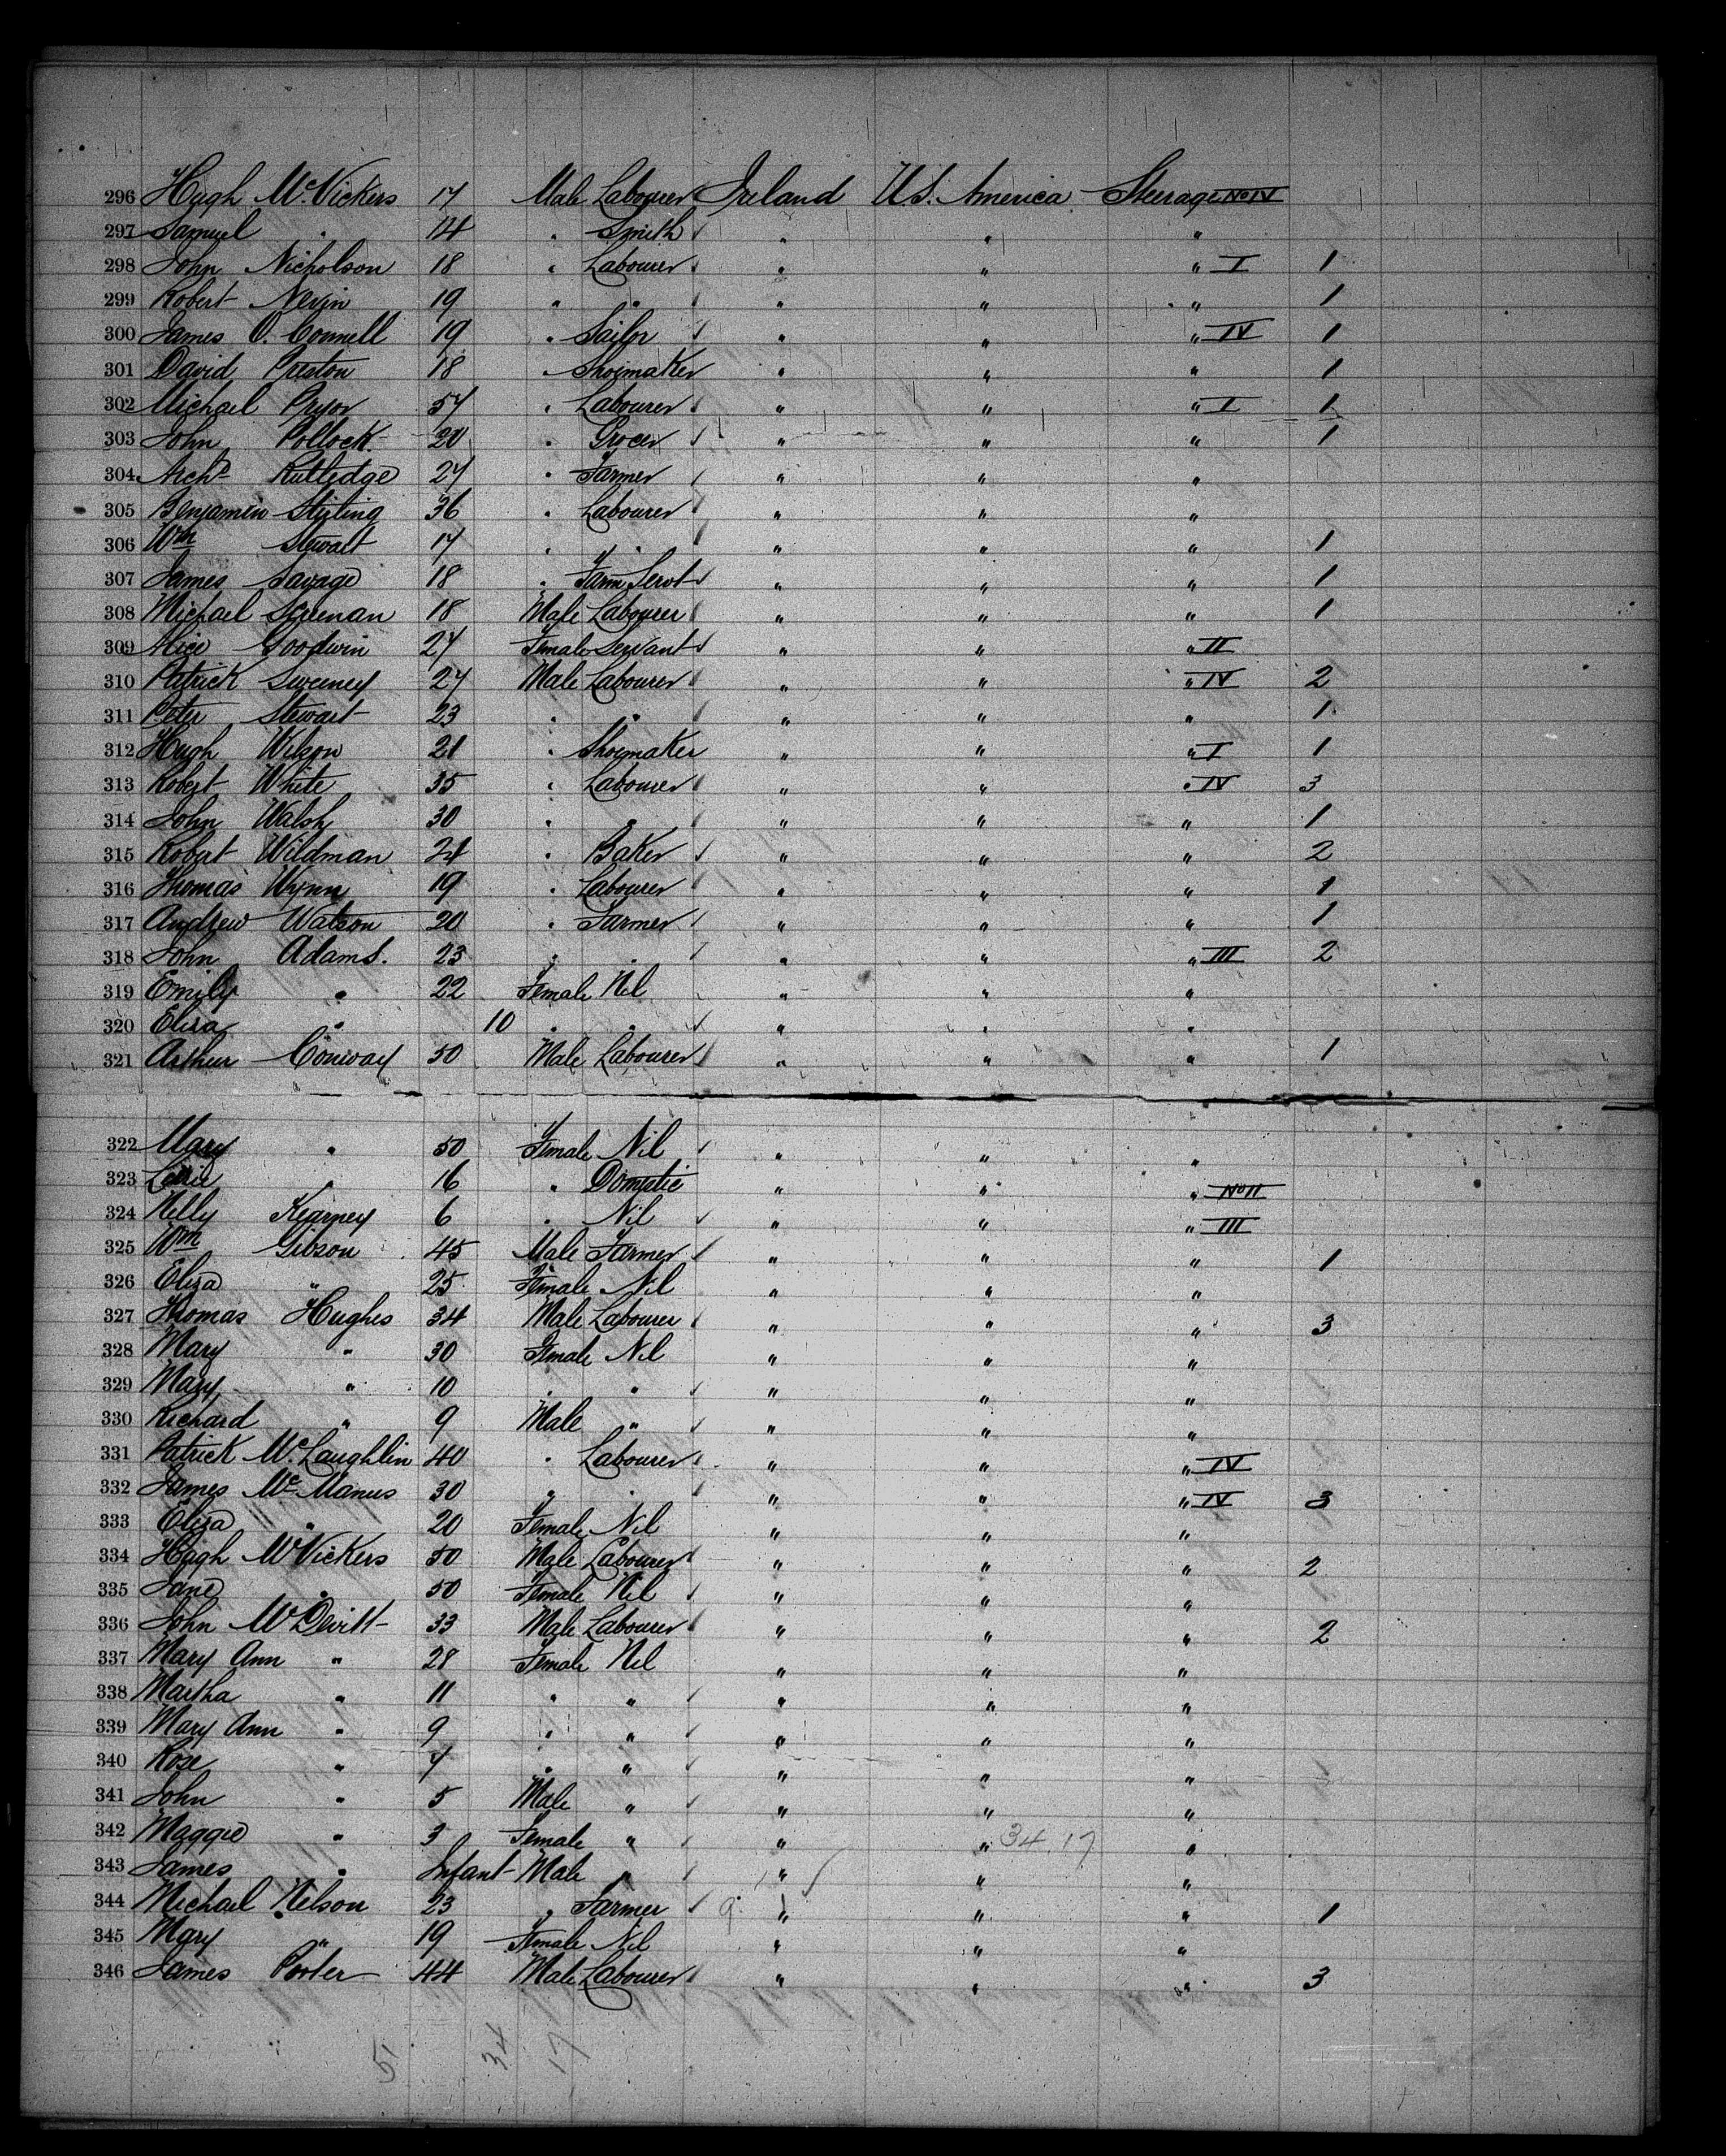 296 Hugh McVickers 17 Male Labourer Ireland U.S. America Steerage No IV
297 Samuel " 14 " Smith " " "
298 John Nicholson 18 " Labourer " " " I 1
299 Robert Nevin 19 " " " " " 1
300 James O'Connell 19 " Sailor " " " IV 1
301 David Preston 18 " Shoemaker " " " 1
302 Michael Pryor 57 " Labourer " " " I 1
303 John Pollock 20 " Grocer " " " 1
304 Archd Rutledge 27 " Farmer " " "
305 Benjamin Stirling 36 " Labourer " " "
306 Wm Stewart 17 " " " " " 1
307 James Savage 18 " Farm Servt " " " 1
308 Michael Screnan 18 Male Labourer " " " 1
309 Alice Goodwin 27 Female Servant " " " II
310 Patrick Sweeney 27 Male Labourer " " " IV 2
311 Peter Stewart 23 " " " " " 1
312 Hugh Wilson 21 " Shoemaker " " " I 1
313 Robert White 35 " Labourer " " " IV 3
314 John Walsh 30 " " " " " 1
315 Robert Wildman 24 " Baker " " " 2
316 Thomas Wynn 19 " Labourer " " " 1
317 Andrew Watson 20 " Farmer " " " 1
318 John Adams. 23 " " " " " III 2
319 Emily " 22 Female Nil " " "
320 Eliza " 10 " " " " "
321 Arthur Conway 50 Male Labourer " " " 1
322 Mary " 50 Female Nil " " "
323 " 16 " Domstic " " " No II
324 Nelly Kearney 6 " Nil " " " III
325 Wm Gibson 45 Male Farmer " " " 1
326 Eliza " 25 Female Nil " " "
327 Thomas Hughes 34 Male Labourer " " " 3
328 Mary " 30 Female Nil " " "
329 Mary " 10 " " " " "
330 Richard " 9 Male " " " "
331 Patrick McLaughlin 40 " Labourer " " " IV
332 James McManus 30 " " " " " IV 3
333 Eliza " 20 Female Nil " " "
334 Hugh McVickers 50 Male Labourer " " " 2
335 Jane " 50 Female Nil " " "
336 John McDevitt 33 Male Labourer " " " 2
337 Mary Ann " 28 Female Nil " " "
338 Martha " 11 " " " " "
339 Mary Ann " 9 " " " " "
340 Rose " 7 " " " " "
341 John " 5 Male " " " "
342 Maggie " 3 Female " " " 34.17 "
343 James " Infant Male " " " "
344 Michael Nelson 23 " Farmer 9 " " " 1
345 Mary " 19 Female Nil " " "
346 James Porter 44 Male Labourer " " " 3
51 34 17